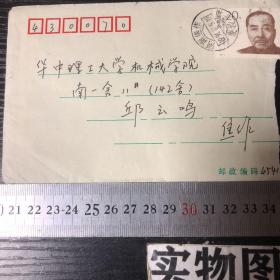 430070
华中理工大学机械学院
南一舍11#(142舍)
邱玉鸣
焦作
邮政编码 454
20 21 22 23 24 25 26 27 28 29 30 31 32 33 34 35
实物图